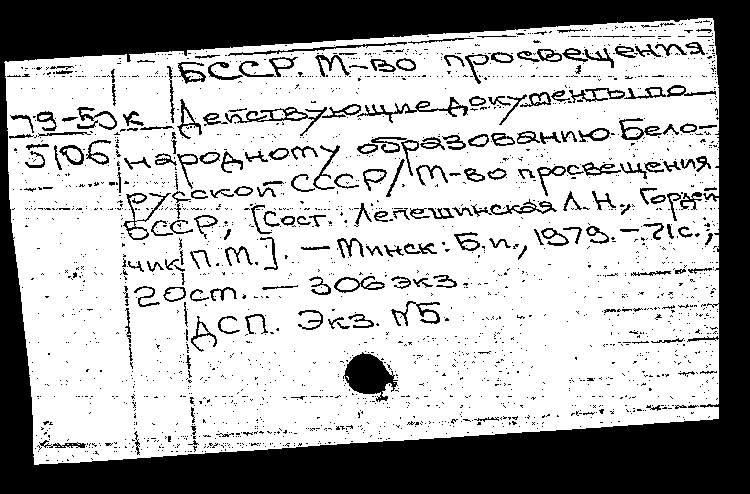 БССР. М-во просвещения
79-50к Действующие документы по
5106 народному образованию Бело-
русской СССР/ М-во просвещения
БССР; [Сост.: Лепешинская Л.Н., Гордей-
чик П.М.]. — Минск: Б.и., 1979. — 71с.;
20см. — 306 экз.
ДСП. Экз. №5.